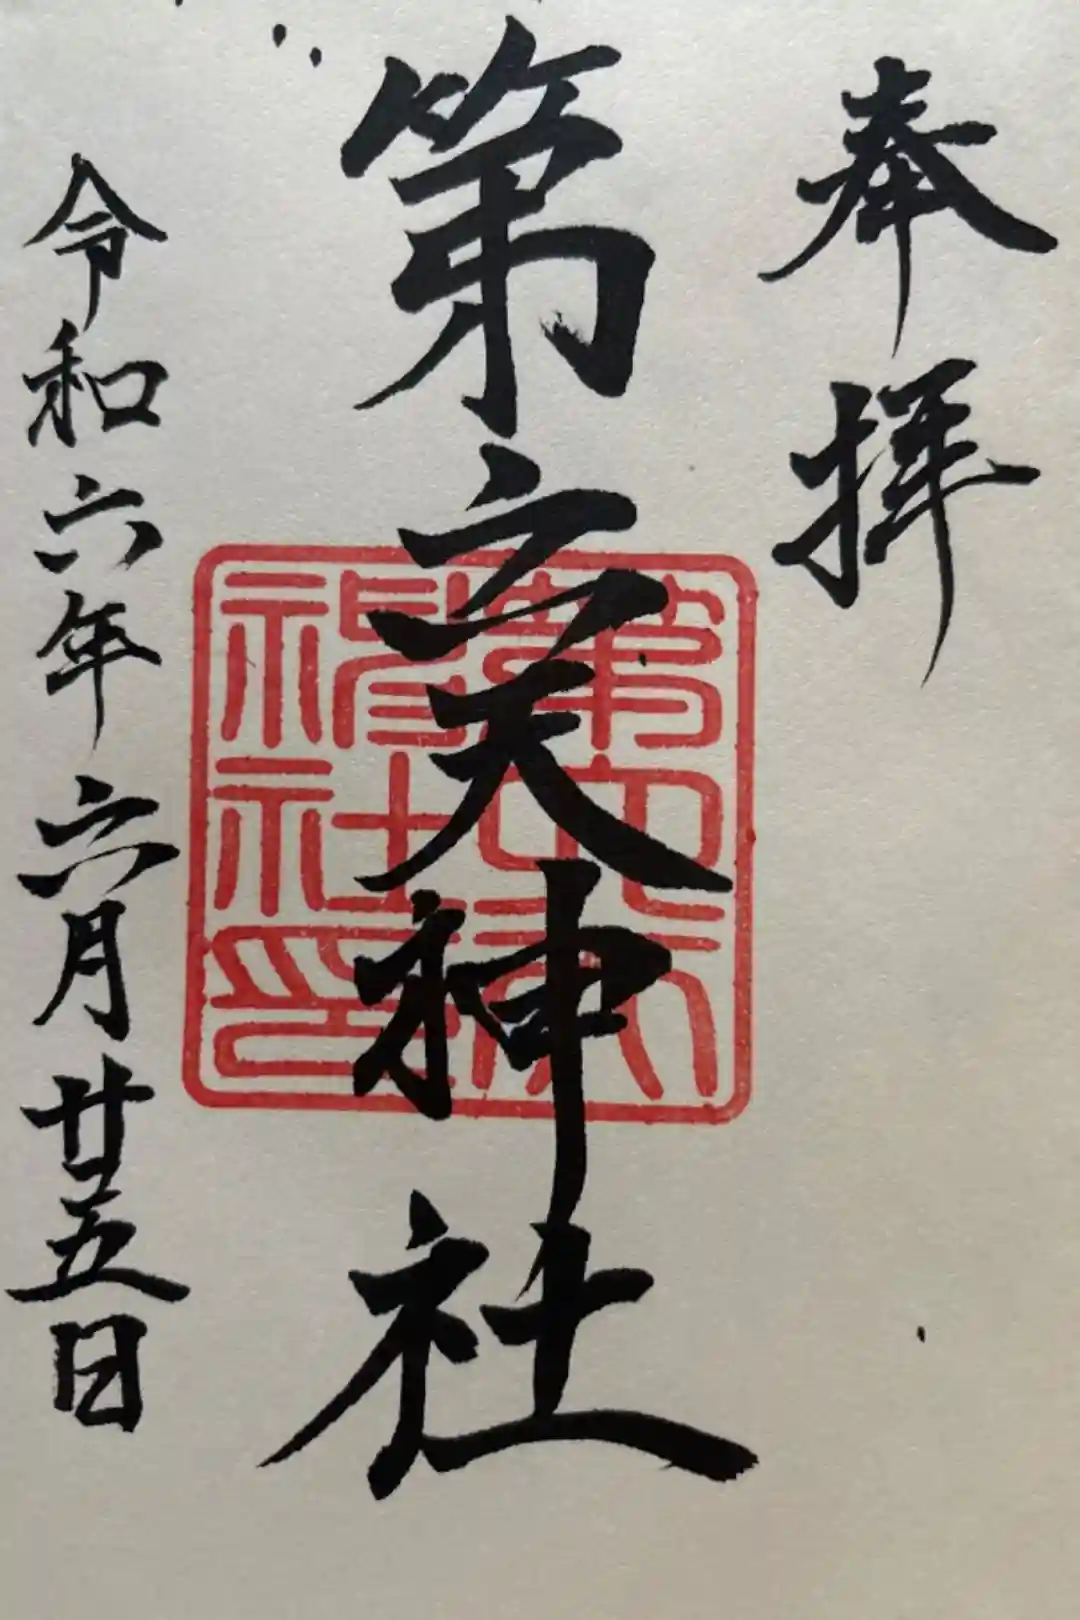 奉拝
第六天神社
第六天神社印
令和六年六月廿五日